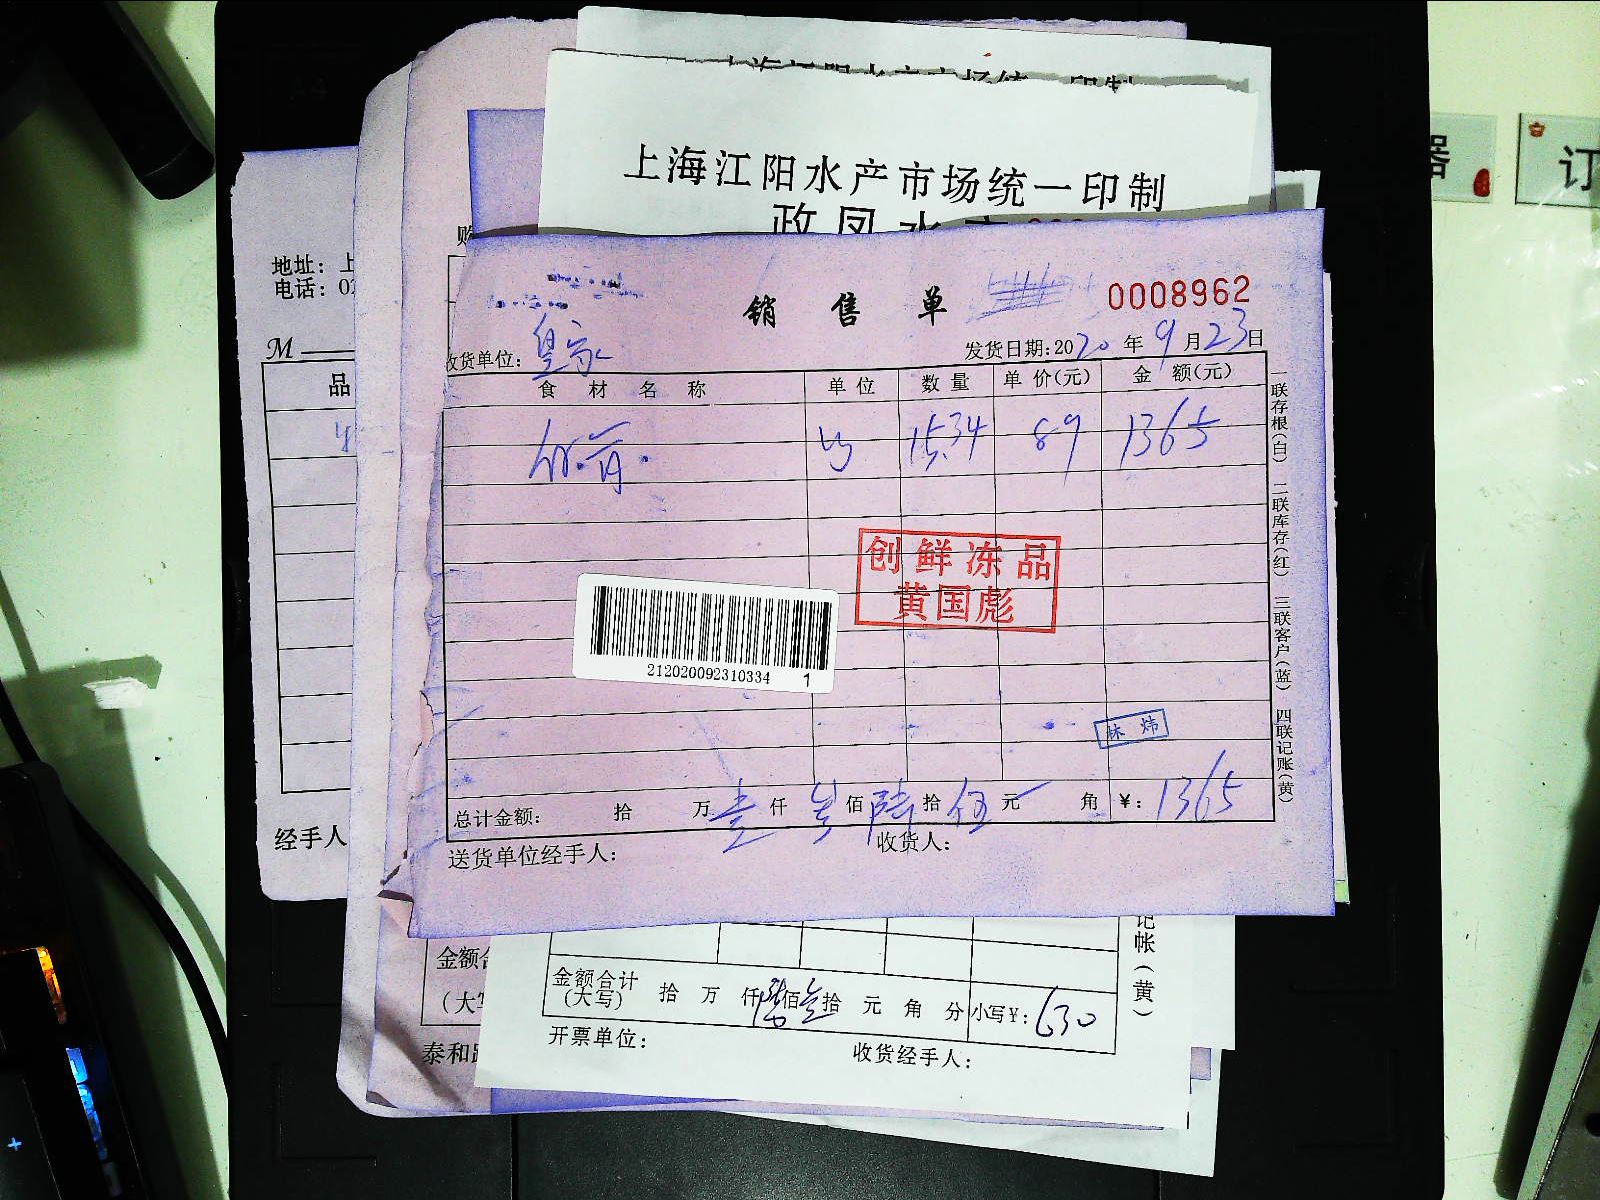 上海江阳水产市场统一印制
政凤水产
地址：上
电话：02
购
销售单
0008962
收货单位：皇家
发货日期：2020年9月23日
M
品
食材名称 单位 数量 单价(元) 金额(元)
15.34 89 1365
一联存根(白) 二联库存(红) 三联客户(蓝) 四联记账(黄)
创鲜冻品
黄国彪
212020092310334 1
林炜
总计金额： 拾 万 壹仟 叁佰 陆拾 伍元 角 ¥：1365
经手人
送货单位经手人： 收货人：
记帐(黄)
金额合
(大写
金额合计
(大写) 拾 万 仟 陆佰 叁拾 元 角 分 小写¥：630
开票单位： 收货经手人：
泰和路
器
订